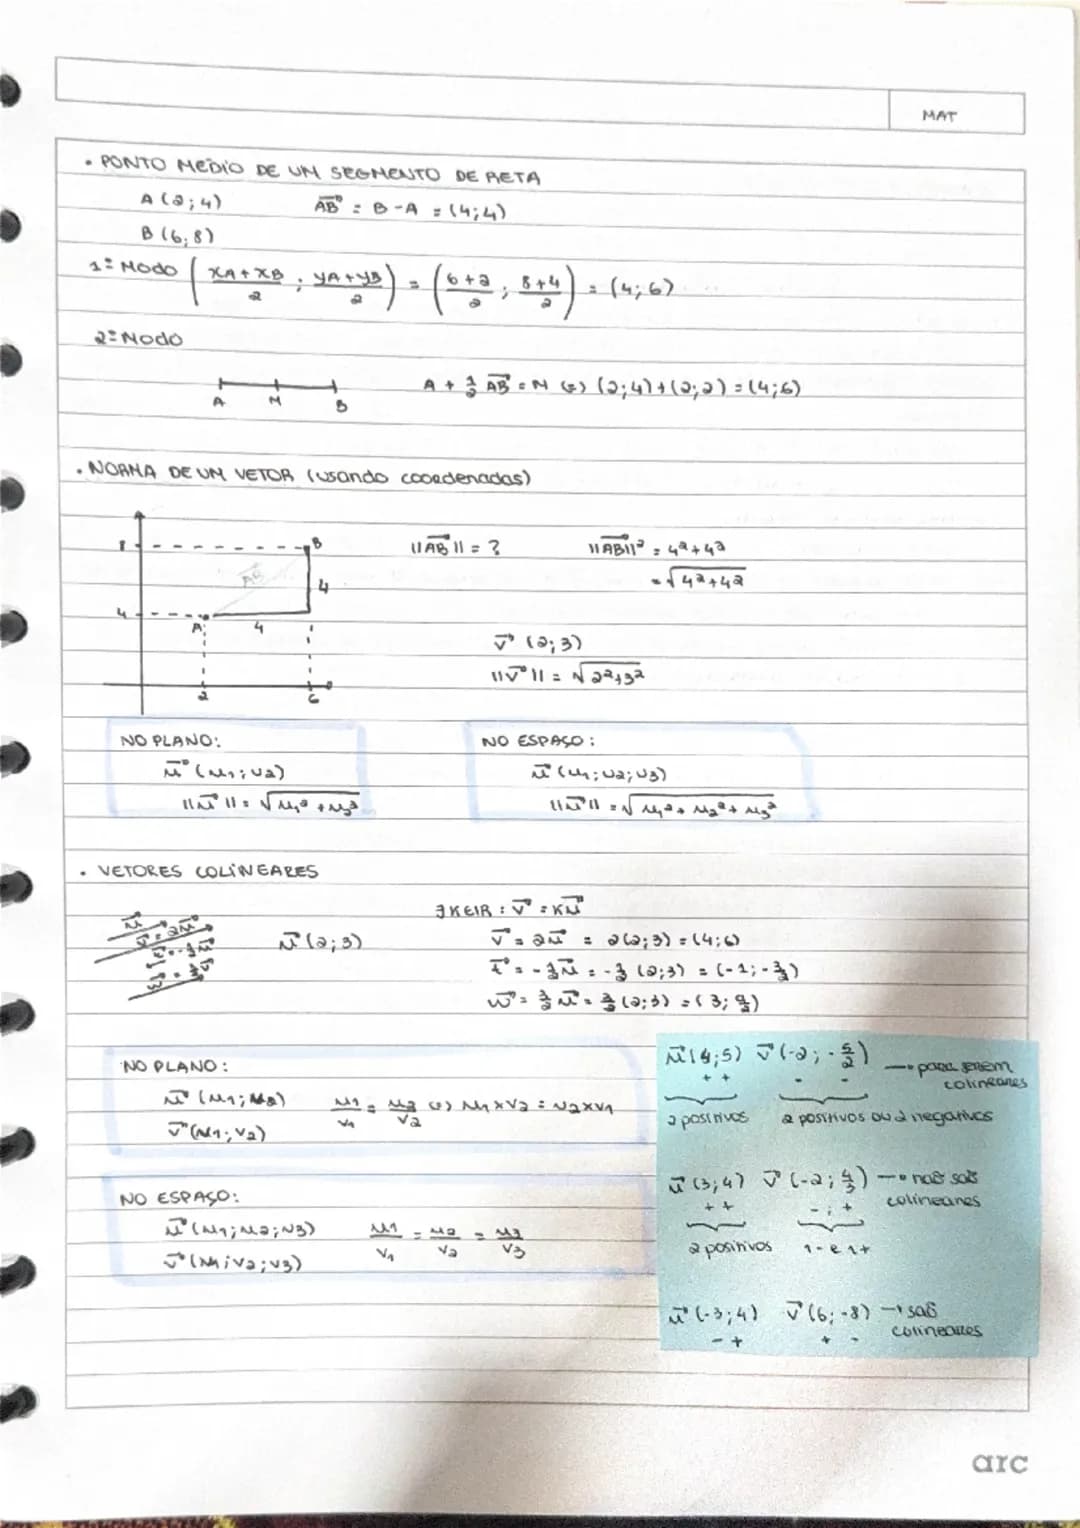 MAT
• PONTO MÉDIO DE UM SEGMENTO DE RETA
A (2;4) AB⃗ = B - A = (4;4)
B (6;8)
1º Modo ( (xA + xB)/2 ; (yA + yB)/2 ) = ( (6+2)/2 ; (8+4)/2 ) = (4;6)
2º Modo
A M B
A + 1/2 AB⃗ = M (=) (2;4)+(2;2) = (4;6)
• NORMA DE UM VETOR (usando coordenadas)
8 B
||AB⃗|| = ? ||AB⃗||² = 4² + 4²
AB⃗ 4
= √4²+4²
4 A 4
v⃗ (2;3)
||v⃗|| = √2²+3²
2 6
NO PLANO:
u⃗ (u₁;u₂)
||u⃗|| = √u₁² + u₂²
NO ESPAÇO:
u⃗ (u₁;u₂;u₃)
||u⃗|| = √u₁² + u₂² + u₃²
• VETORES COLINEARES
u⃗
v⃗ = 2u⃗
u⃗ (2;3)
∃ K∈IR : v⃗ = Ku⃗
v⃗ = 2u⃗ = 2(2;3) = (4;6)
t⃗ = -1/2 u⃗ = -1/2 (2;3) = (-1;-3/2)
w⃗ = 3/2 u⃗ = 3/2 (2;3) = (3; 9/2)
NO PLANO:
u⃗ (u₁;u₂)
v⃗ (v₁;v₂)
u₁/v₁ = u₂/v₂ (=) u₁×v₂ = u₂×v₁
NO ESPAÇO:
u⃗ (u₁;u₂;u₃)
v⃗ (v₁;v₂;v₃)
u₁/v₁ = u₂/v₂ = u₃/v₃
u⃗ (4;5) v⃗ (-2; -5/2) → para serem colineares
+ + - -
2 positivos 2 positivos ou 2 negativos
u⃗ (3;4) v⃗ (-2; 4/3) → não são colineares
+ + - ; +
2 positivos 1 - e 1 +
u⃗ (-3;4) v⃗ (6;-8) → são colineares
- + + -
arc